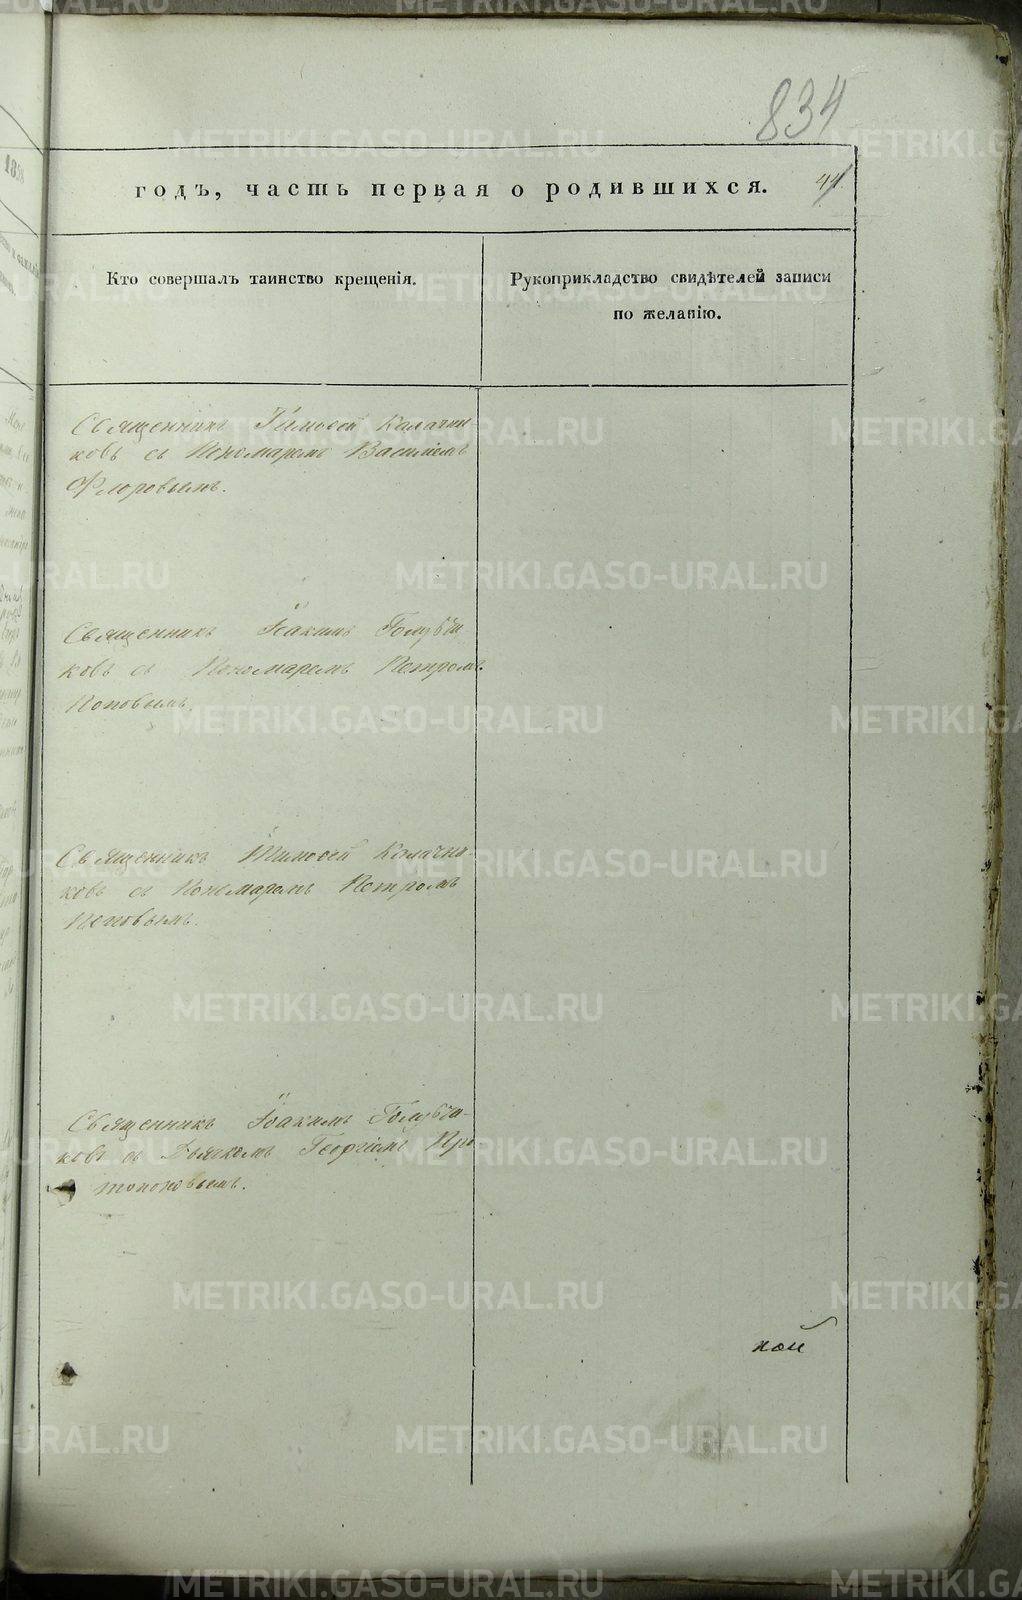 834
годъ, часть первая о родившихся.
44
Кто совершалъ таинство крещенія.
Рукоприкладство свидѣтелей записи
по желанію.
Священникъ Тимоѳей Калачни
ковъ съ Пономаремъ Василіемъ
Флоровымъ.
Священникъ Іоакимъ Голубчи
ковъ съ Пономаремъ Петромъ
Поповымъ.
Священникъ Тимоѳей Калачни-
ковъ съ Пономаремъ Петромъ
Поповымъ.
Священникъ Іоакимъ Голубчи-
ковъ съ Дьячкомъ Георгіемъ Про
топоповымъ.
кой
METRIKI.GASO-URAL.RU